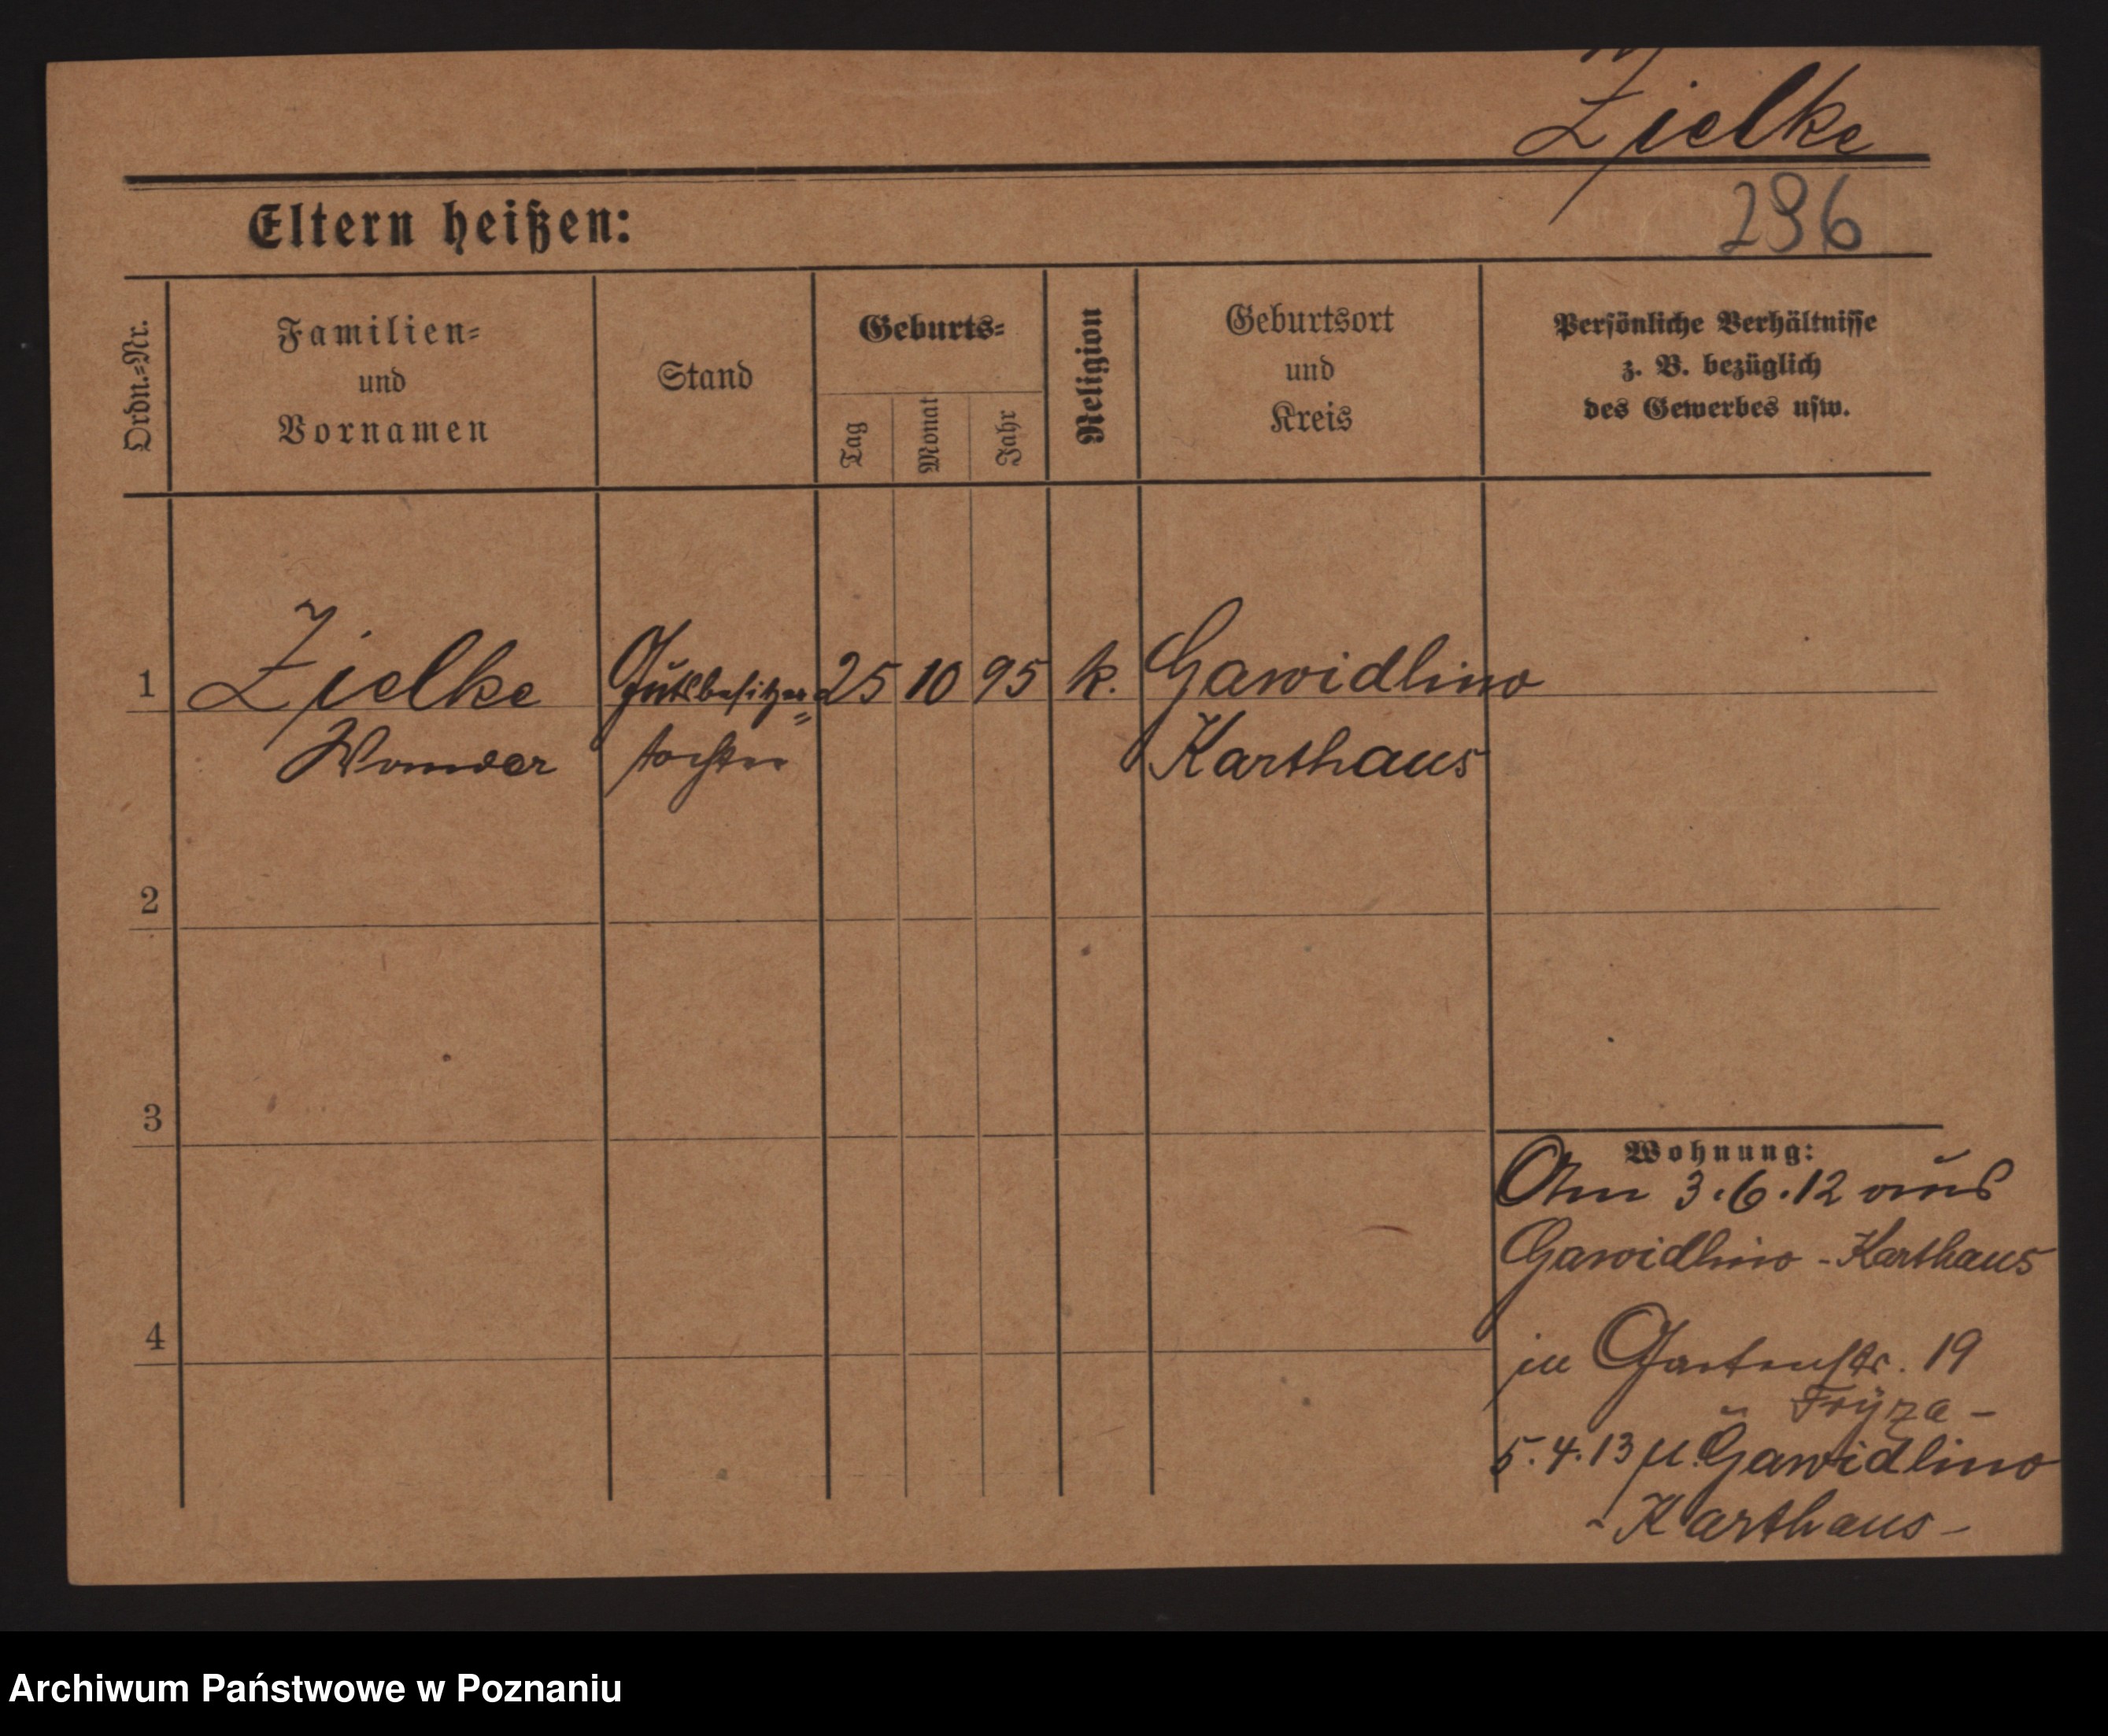 Zielke
Eltern heißen:
296
Ordn.=Nr.
Familien=
und
Vornamen
Stand
Geburts=
Tag
Monat
Jahr
Religion
Geburtsort
und
Kreis
Persönliche Verhältnisse
z. B. bezüglich
des Gewerbes usw.
1 Zielke Gutsbesitzer= 25 10 95 k. Gawidlino
tochter Karthaus
2
3
4
Wohnung:
Am 3.6.12 aus
Gawidlino - Karthaus
in Gartenstr. 19
Fryza -
5.4.13 n. Gawidlino
- Karthaus -
Archiwum Państwowe w Poznaniu